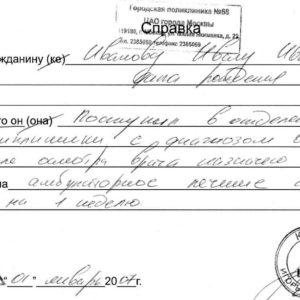 Городская поликлиника №68
ЦАО города Москвы
Справка
жданину (ке) Иванову Ивану Ив
дата рождения
то он (она) Поступил в отделен
с диагнозом
осмотра врача назначено
на амбулаторное лечение
на 1 неделю
"01" январь 2007г.